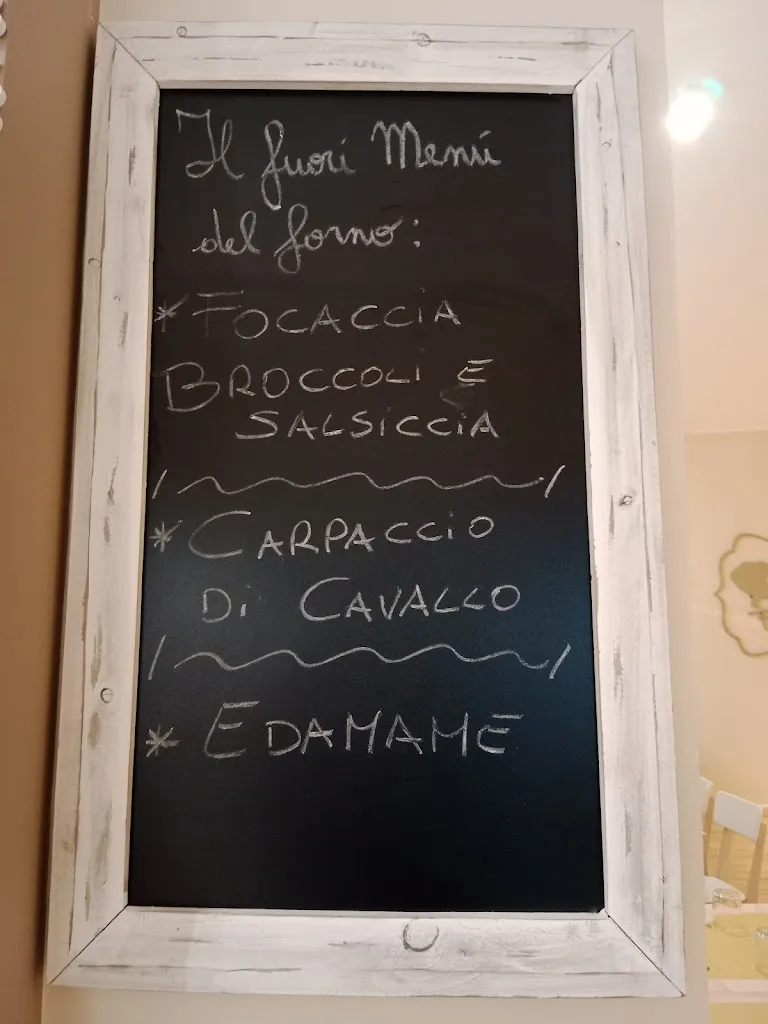 Il fuori Menú
del forno:
* FOCACCIA
BROCCOLI E
SALSICCIA
* CARPACCIO
DI CAVALLO
* EDAMAME